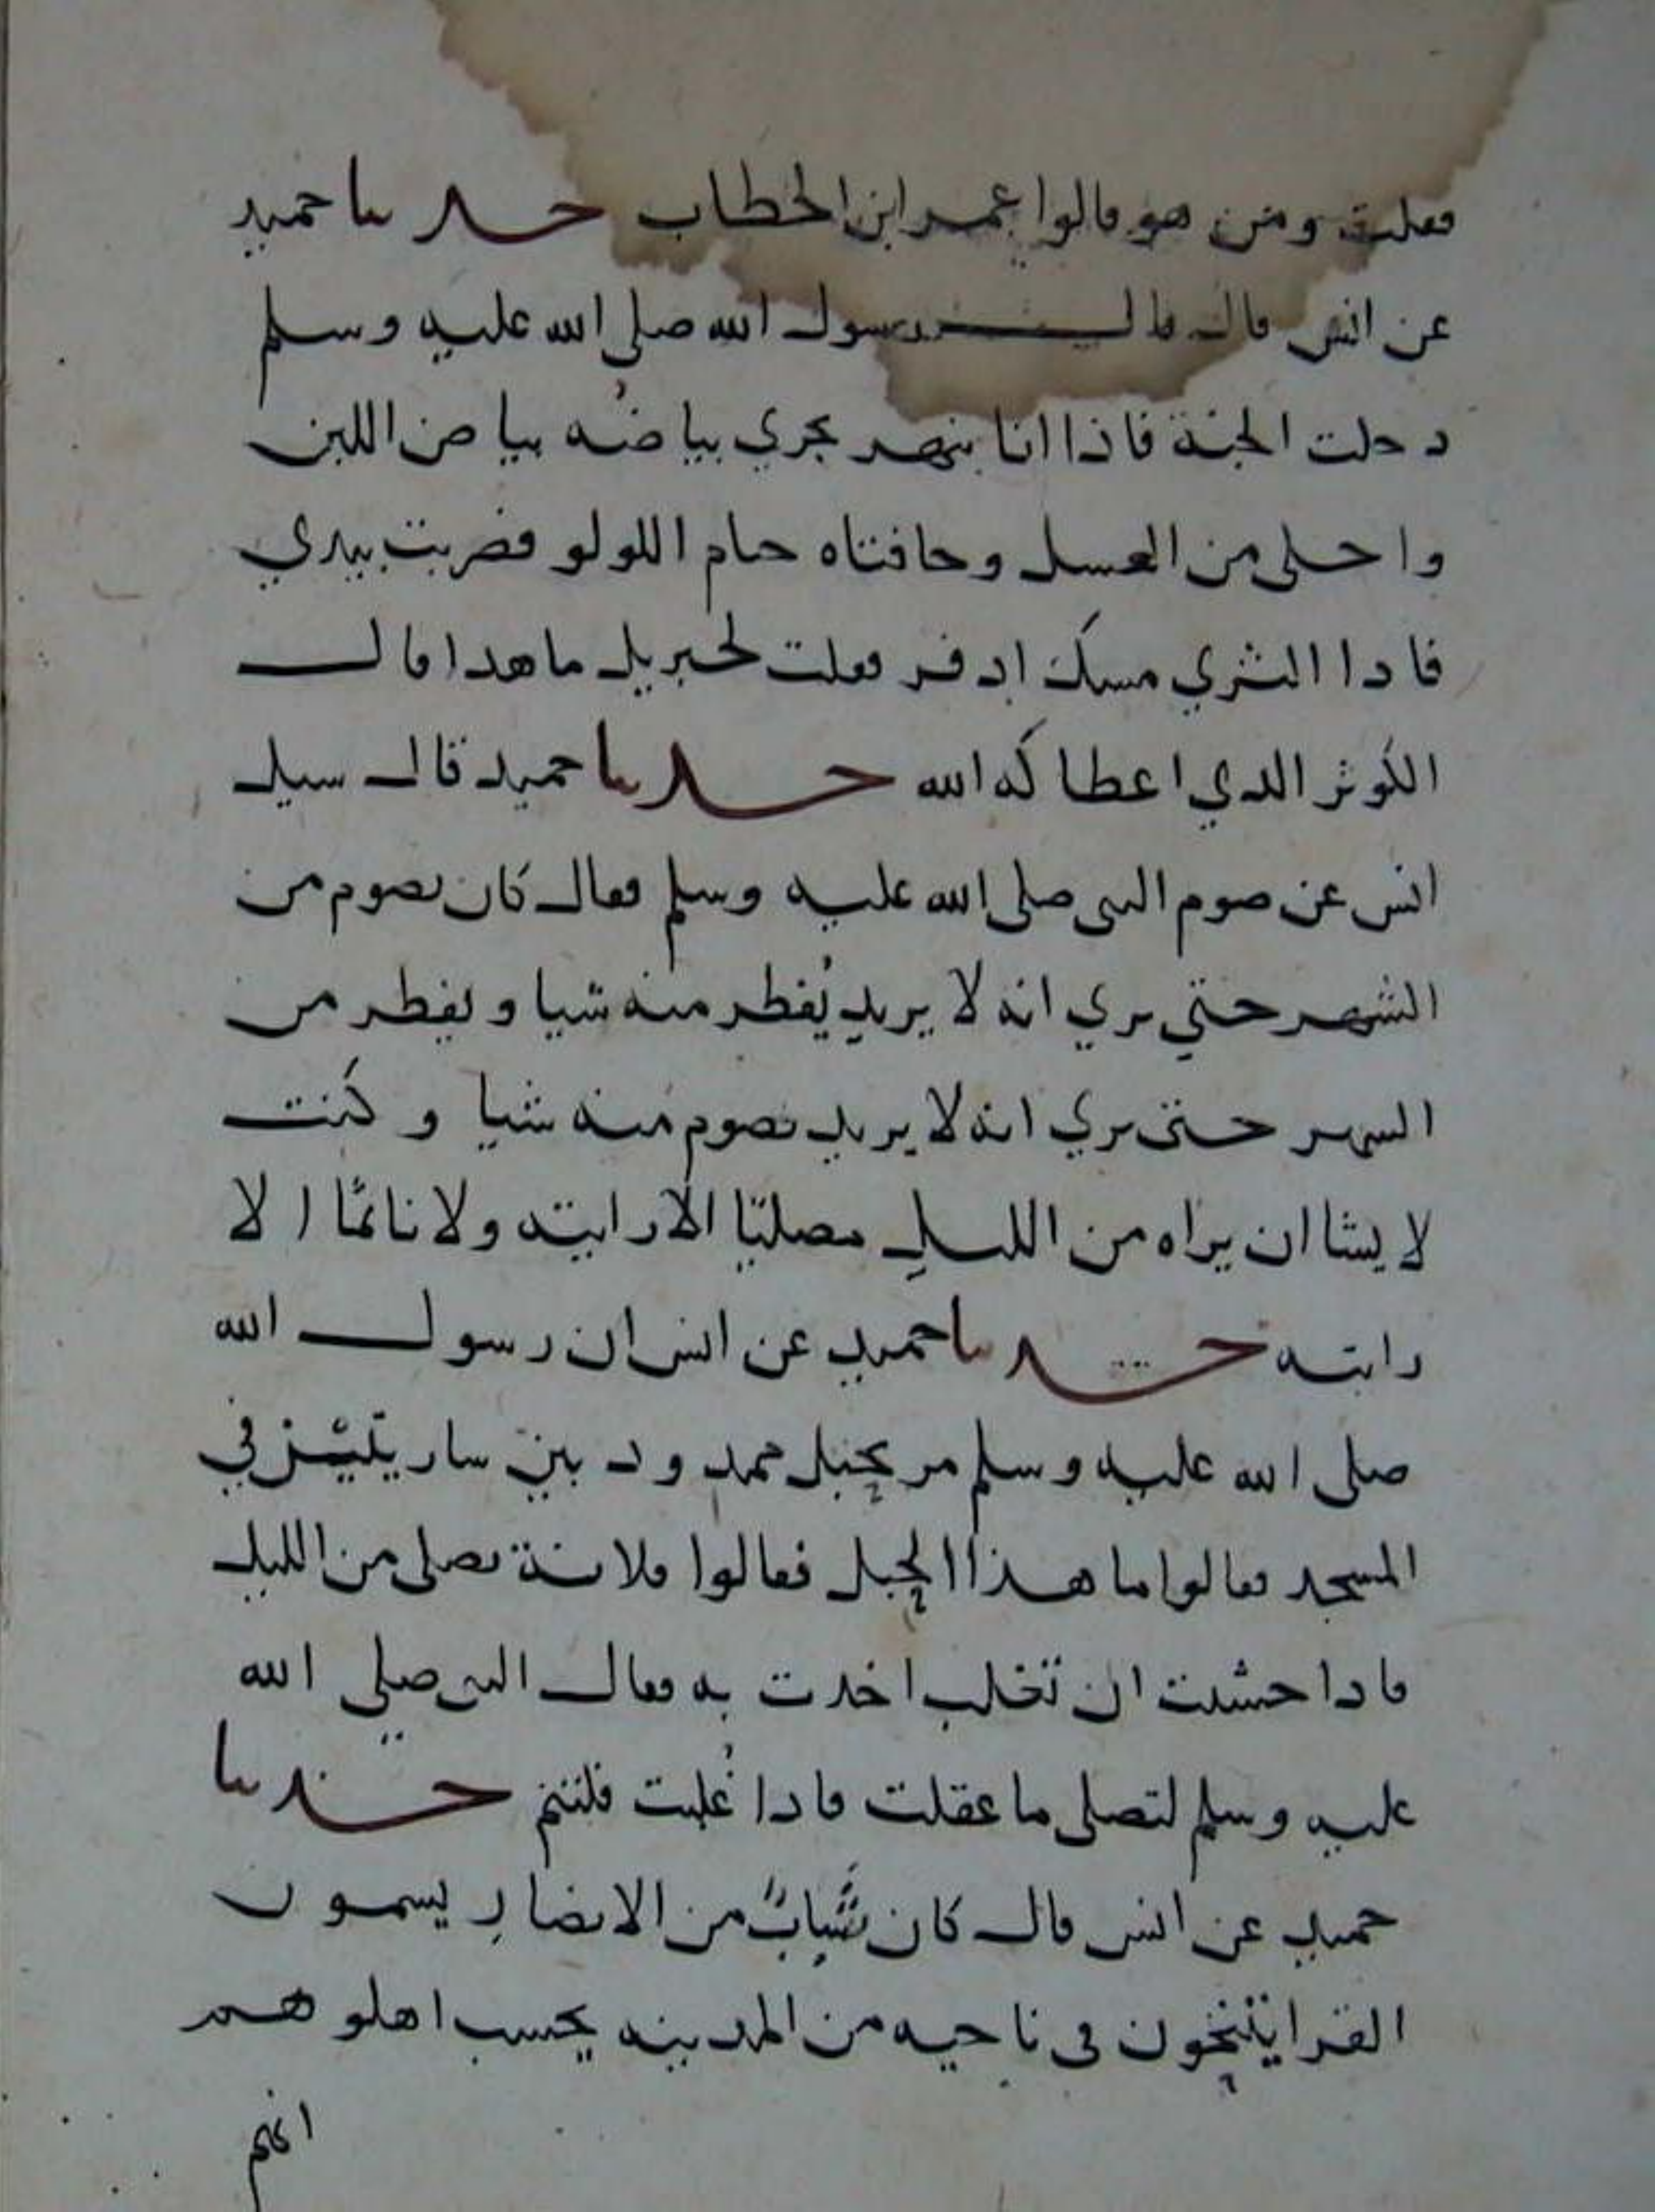 فقلت ومن هو قالوا عمر ابن الخطاب حدثنا حميد
عن انس قال قال رسول الله صلى الله عليه وسلم
دخلت الجنة فاذا انا بنهر يجري بياضُه بياض اللبن
واحلى من العسل وحافتاه خيام اللولو فضربت بيدي
فاذا الثري مسك اذفر فقلت لجبريل ما هذا قال
الكوثر الذي اعطاكه الله حدثنا حميد قال سيل
انس عن صوم النبي صلى الله عليه وسلم فقال كان يصوم من
الشهر حتي يري انه لا يريد يُفطر منه شيا ويفطر من
الشهر حتى يري انه لا يريد يصوم منه شيا وكنت
لا يشا ان يراه من الليل مصليًا الا رايته ولا نائمًا الا
رايته حدثنا حميد عن انس ان رسول الله
صلى الله عليه وسلم مر بحبل ممدود بين ساريتين في
المسجد فقالوا ما هذا الحبل فقالوا فلانة تصلى من الليل
فاذا خشيت ان تغلب اخذت به فقال النبي صلى الله
عليه وسلم لتصلى ما عقلت فاذا غُلبت فلتنم حدثنا
حميد عن انس قال كان شَبابٌ من الانصار يسمون
القرا يتنحون في ناحيه من المدينه يحسب اهلوهم
انهم